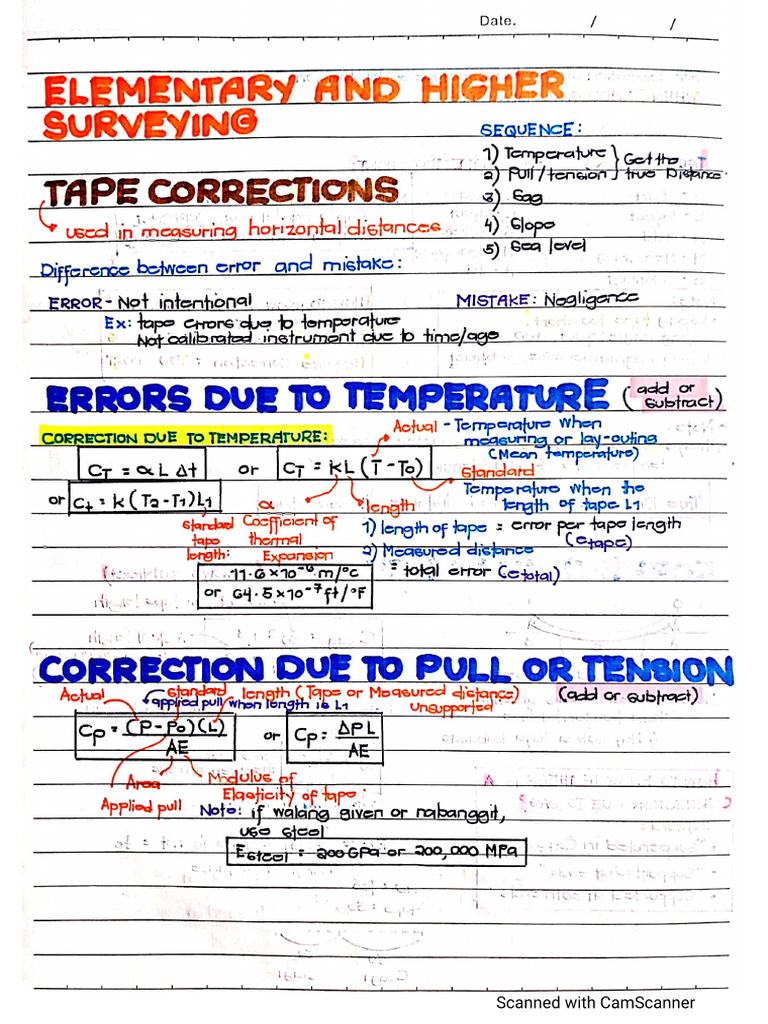 Date. / /
ELEMENTARY AND HIGHER
SURVEYING
SEQUENCE:
1) Temperature } Get the
2) Pull/tension } true Distance
3) Sag
4) Slope
5) Sea level
TAPE CORRECTIONS
↳ used in measuring horizontal distances
Difference between error and mistake:
ERROR - Not intentional
MISTAKE: Negligence
Ex: tape errors due to temperature
Not calibrated instrument due to time/age
ERRORS DUE TO TEMPERATURE (add or subtract)
CORRECTION DUE TO TEMPERATURE:
Actual - Temperature when
measuring or lay-outing
(Mean temperature)
CT = αLΔt or CT = KL(T-To)
Standard
Temperature when the
length of tape L1
or Ct = K(T2-T1)L1
standard
tape
length:
α
Coefficient of
thermal
Expansion
length
1) length of tape = error per tape length
(etape)
2) Measured distance
= total error (etotal)
11.6 x 10⁻⁶ m/°C
or 64.5 x 10⁻⁷ ft/°F
CORRECTION DUE TO PULL OR TENSION
(add or subtract)
Actual
standard
applied pull when length is L1
length (Tape or Measured distance)
unsupported
Cp = (P-Po)(L) / AE or Cp = ΔPL / AE
Area
Applied pull
Mdulus of
Elasticity of tape:
Note: if walang given or nabanggit,
use steel
Esteel = 200 GPa or 200,000 MPa
Scanned with CamScanner